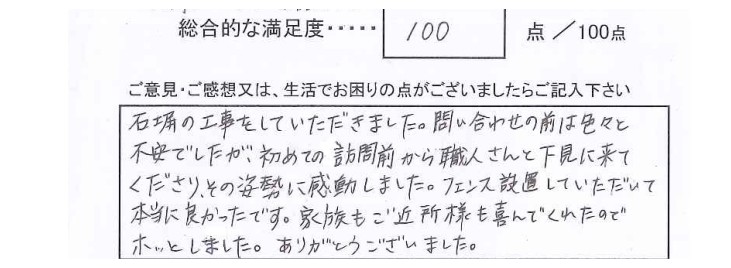 総合的な満足度・・・・・ 100 点／100点
ご意見・ご感想又は、生活でお困りの点がございましたらご記入下さい
石塀の工事をしていただきました。問い合わせの前は色々と
不安でしたが、初めての訪問前から職人さんと下見に来て
くださり、その姿勢に感動しました。フェンス設置していただいて
本当に良かったです。家族もご近所様も喜んでくれたので
ホッとしました。ありがとうございました。